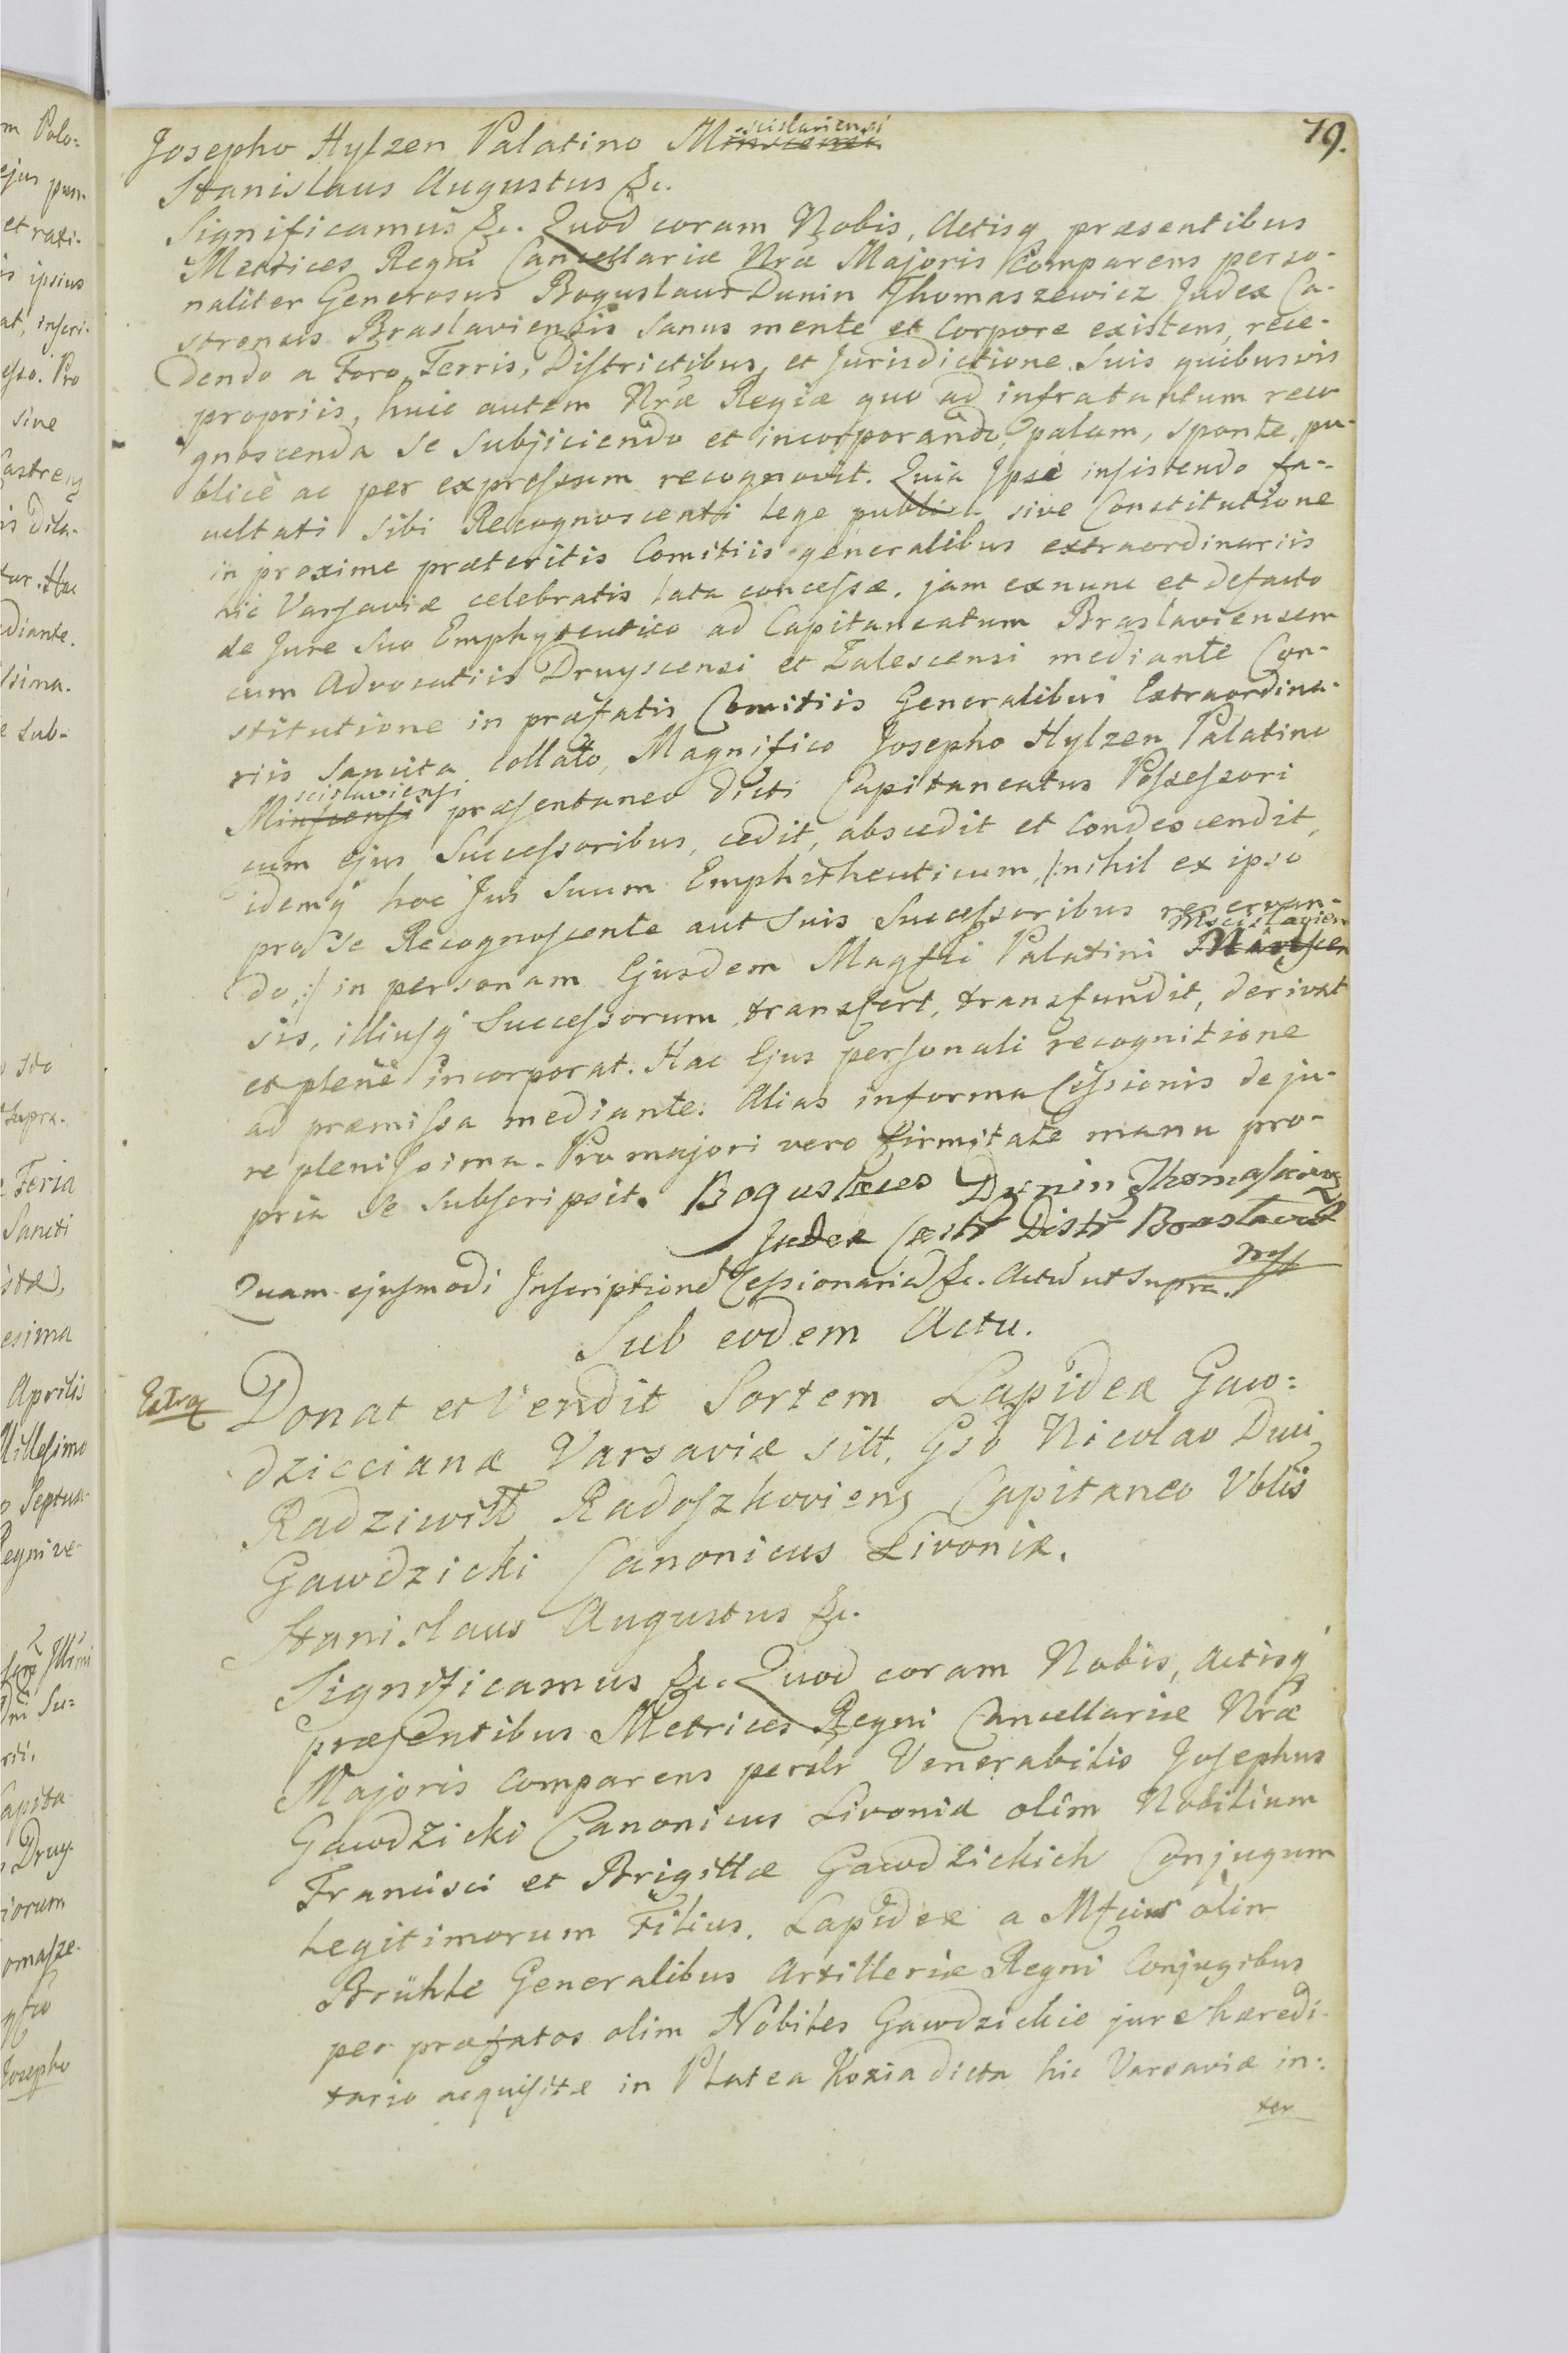 79.
Josepho Hylzen Palatino Mscislaviensi
Stanislaus Augustus &c.
Significamus &c. Quod coram Nobis, Actisq præsentibus
Metrices Regni Cancellariæ Nræ Majoris Comparens perso-
naliter Generosus Boguslaus Dunin Thomaszewicz Judex Ca-
strensis Braslaviensis sanus mente et Corpore existens, rece-
dendo a Foro, Terris, Districtibus, et Jurisdictione Suis quibusvis
propriis, huic autem Nræ Regiæ quo ad infratantum reco
gnoscenda se subjiciendo et incorporando, palam, sponte, pu-
blicè ac per expressum recognovit. Quia Ipse insistendo fa-
cultati sibi Recognoscenti lege publica sive Constitutione
in proxime præteritis Comitiis generalibus extraordinariis
hic Varsaviæ celebratis lata concessæ, jam exnunc et defacto
de Jure suo Emphyteutico ad Capitaneatum Braslaviensem
cum Advocatiis Druyscensi et Zalescensi mediante Con-
stitutione in præfatis Comitiis Generalibus Extraordina-
riis sancita, collato, Magnifico Josepho Hylzen Palatino
Mscislaviensi præsentaneo dicti Capitaneatus Possessori
cum ejus Successoribus, cedit, abscedit et Condescendit,
idemq hoc Jus Suum Emphitheuticum, /:nihil ex ipso
pro se Recognoscente aut Suis Successoribus reservan-
do,:/ in personam Ejusdem Magfci Palatini Mscislavien
sis, illiusq Successorum transfert, transfundit, derivat
et plenè incorporat. Hac Ejus personali recognitione
ad præmissa mediante. Alias informa Cessionis de ju-
re plenissima. Pro majori vero firmitate manu pro-
pria se subscripsit. Boguslaus Dunin Thomaszewicz
Judex Castr Distr Braslavie
Quam ejusmodi Inscriptione Cessionaria &c. Actu ut supra.
Sub eodem Actu.
Extra
Donat et Vendit Sortem Lapideæ Gaw-
dziccianæ Varsaviæ sitt, Gso Nicolao Duci
Radziwiłł Radoszkoviens Capitaneo Vblis
Gawdzicki Canonicus Livoniæ.
Stanislaus Augustus &c.
Significamus &c. Quod coram Nobis, Actisq
præsentibus Metrices Regni Cancellariæ Nræ
Majoris Comparens perslr Venerabilis Josephus
Gawdzicki Canonicus Livoniæ olim Nobilium
Francisci et Brigittæ Gawdzickich Conjugum
Legitimorum Filius, Lapideæ a Mfcis olim
Brühle Generalibus Artilleriæ Regni Conjugibus
per præfatos olim Nobiles Gawdzickie jure hæredi-
tario acquisitæ in Platea Kozia dicta hic Varsaviæ in-
ter